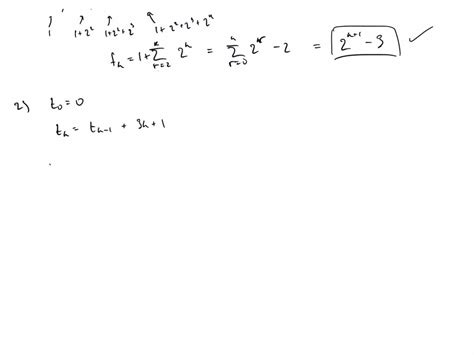 1 1+2² 1+2²+2³ 1+2²+2³+2⁴
fₖ = 1 + ∑_{r=2}^{k} 2^k = ∑_{r=0}^{k} 2^r − 2 = 2^{k+1} − 3 ✓
2) t₀ = 0
tₖ = tₖ₋₁ + 3k + 1